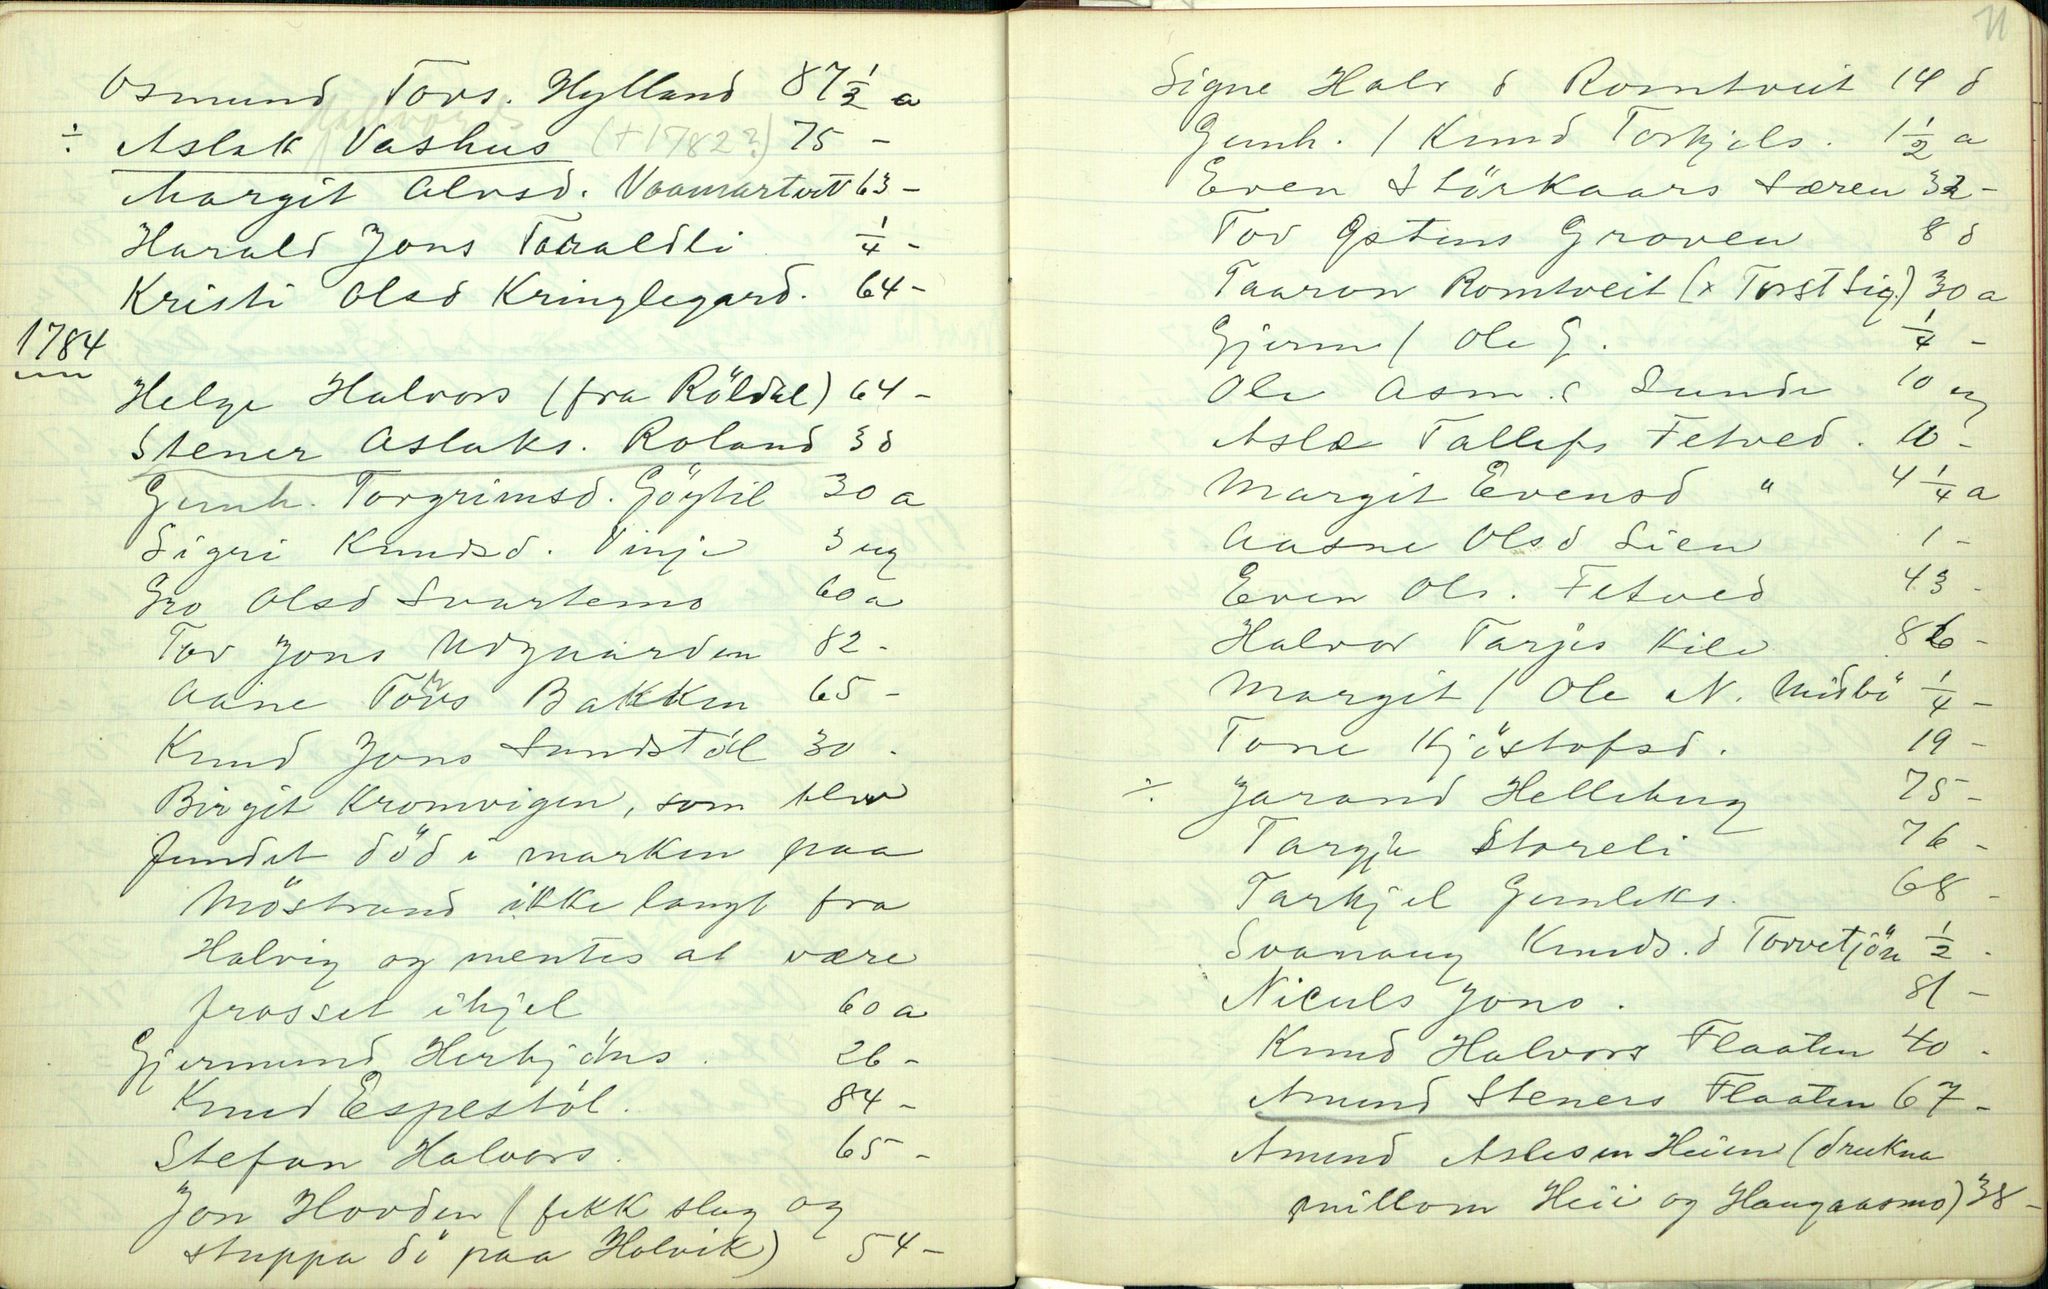 Osmund Tovs. Hylland 87 1/2 a
Halvorss
÷ Aslak Vashus (+ 1782?) 75 -
Margit Olvsd. Vaamartveit 63 -
Harald Jons Taraldli 1/4 -
Kristi Olsd Kringlegard. 64 -
1784
Helge Halvors (fra Röldal) 64 -
Stener Aslaks. Roland 3 d
Gunh. Torgrimsd. Göytil 30 a
Sigri Knudsd. Vinje 3 ug
Gro Olsd Svartemo 60 a
Tov Jons Udgaarden 82 -
Aane Tovs Bakken 65 -
Knud Jons Sundstöl 30 -
Birgit Kromvigen, som blev
fundet död i marken paa
Möstrand ikke langt fra
Halvig og mentes at være
frosset ihjel 60 a
Gjermund Herbjöns. 26 -
Knud Espestöl. 84 -
Stefan Halvors. 65 -
Jon Hovden (fekk slag og
stuppa dö paa Holvik) 54 -
11
Signe Halv d Romtveit 14 d
Gunh. / Knud Torkjels. 1 1/2 a
Even Störkaars Særen 32 -
Tov Östens Groven 8 d
Taaron Romtveit (x Torst Sig.) 30 a
Gjerm / Ole G. 1/4 -
Ole Asm. s Sunde 10 ug
Asle Tallefs Fetved. 10 -
Margit Evensd " 4 1/4 a
Aasne Olsd Lien 1 -
Even Ols. Fetved 43 -
Halvor Tarjes Kile 86 -
Margit / Ole N. Midbö 1/4 -
Tone Kjöstofsd. 19 -
÷ Jarand Hellebug 75 -
Targje Storeli 76 -
Tarkjel Gunleks. 68 -
Svanaug Knuds.d Torvetjön 1/2 -
Niculs Jons. 81 -
Knud Halvors Flaaten 40 -
Amund Steners Flaaten 67 -
Amund Aslesen Heien (drukna
millom Heii og Haugaasmo) 38 -